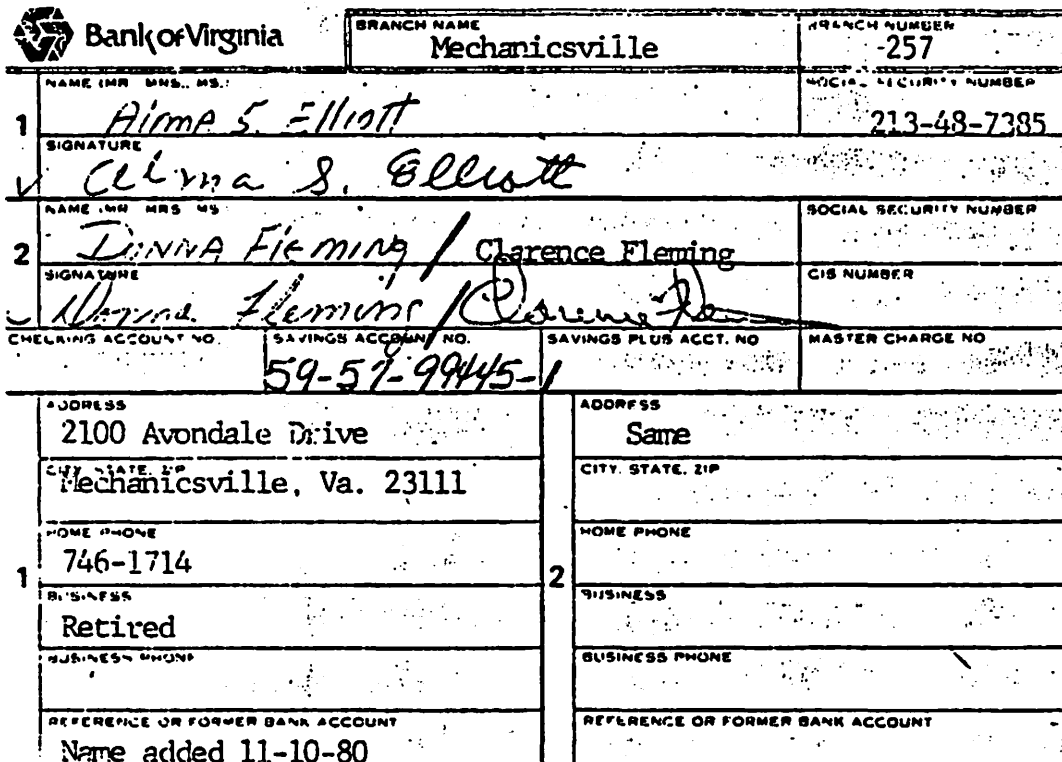 Bank of Virginia
BRANCH NAME
Mechanicsville
BRANCH NUMBER
-257
NAME (MR. MRS., MS.:
Alma S. Elliott
SOCIAL SECURITY NUMBER
213-48-7385
1
SIGNATURE
Alma S. Elliott
NAME (MR MRS MS
Donna Fleming / Clarence Fleming
SOCIAL SECURITY NUMBER
2
SIGNATURE
Donna Fleming / Clarence Fleming
CIS NUMBER
CHECKING ACCOUNT NO.
SAVINGS ACCOUNT NO.
59-57-99445-1
SAVINGS PLUS ACCT. NO
MASTER CHARGE NO
ADDRESS
2100 Avondale Drive
CITY, STATE, ZIP
Mechanicsville, Va. 23111
HOME PHONE
746-1714
1
BUSINESS
Retired
BUSINESS PHONE
REFERENCE OR FORMER BANK ACCOUNT
Name added 11-10-80
ADDRESS
Same
CITY, STATE, ZIP
HOME PHONE
2
BUSINESS
BUSINESS PHONE
REFERENCE OR FORMER BANK ACCOUNT